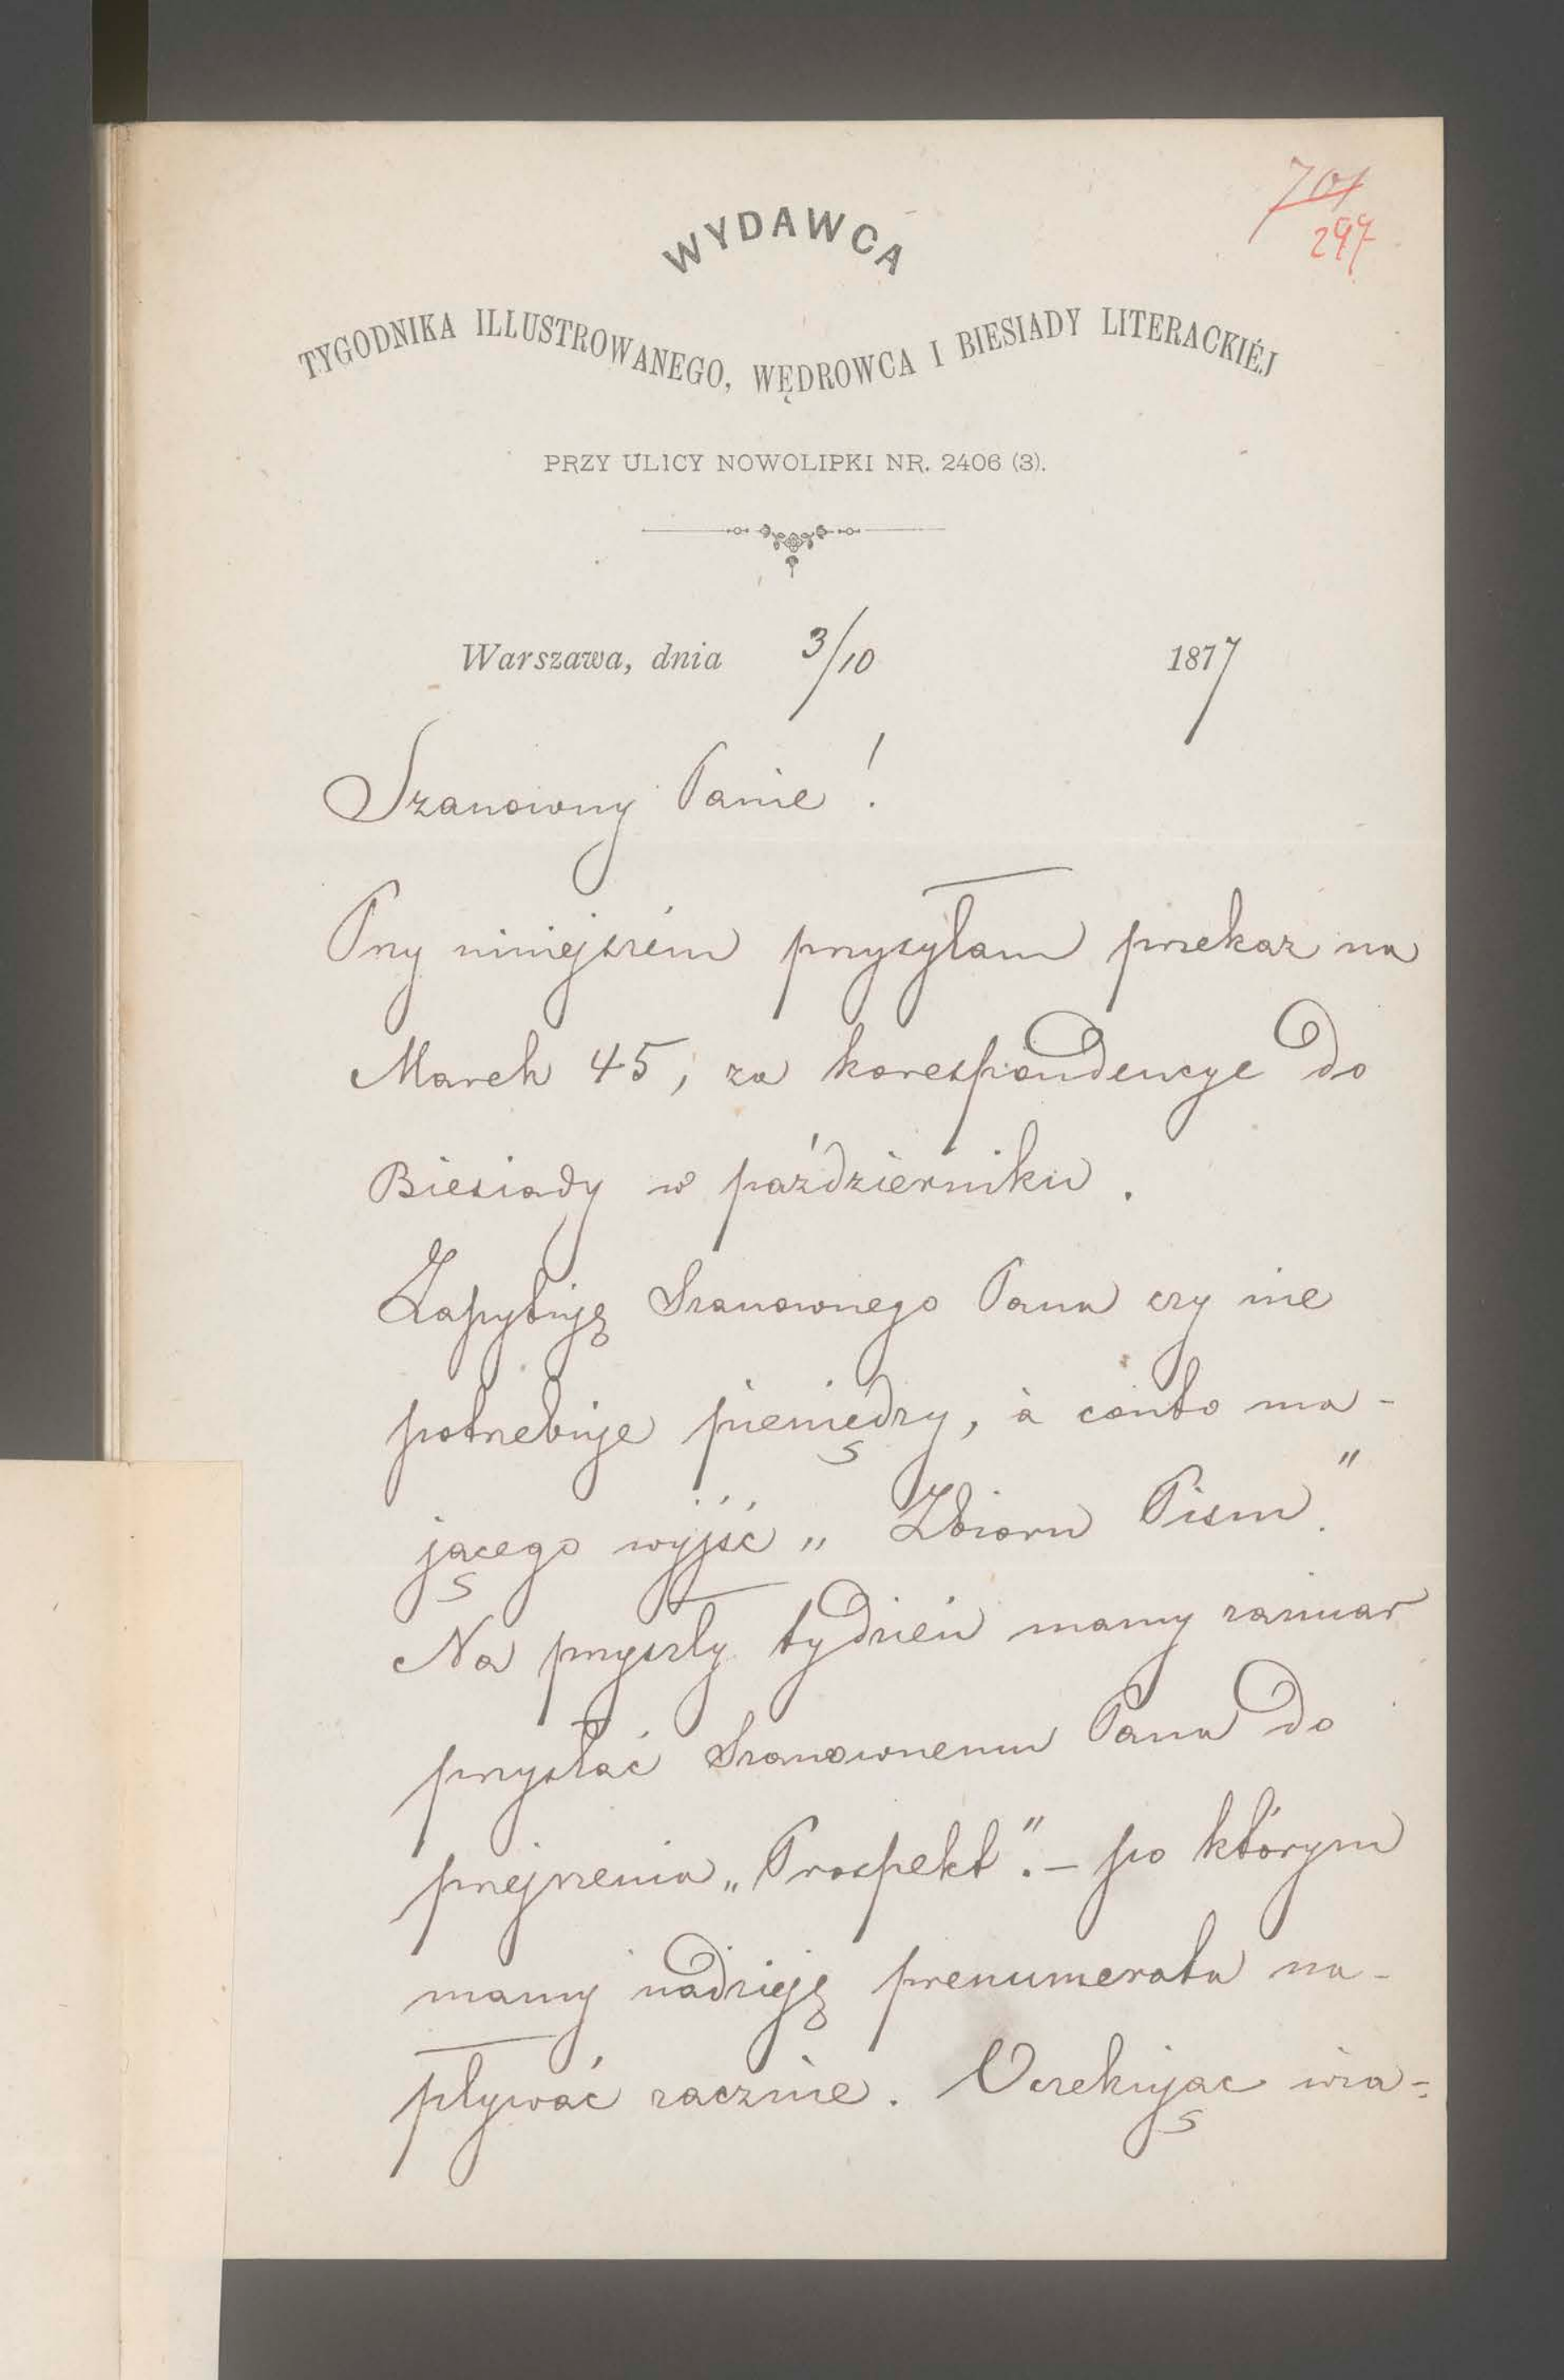 701
297
WYDAWCA
TYGODNIKA ILLUSTROWANEGO, WĘDROWCA I BIESIADY LITERACKIÉJ
PRZY ULICY NOWOLIPKI NR. 2406 (3).
Warszawa, dnia 3/10 1877
Szanowny Panie!
Przy niniejszém przysyłam przekaz na
Marek 45, za korespondencye do
Biesiady w październiku.
Zapytuję Szanownego Pana czy nie
potrzebuje pieniędzy, à conto ma-
jącego wyjść „Zbioru Pism."
Na przyszły tydzień mamy zamiar
przysłać Szanownemu Panu do
przejrzenia „Prospekt". — po którym
mamy nadzieję prenumerata na-
pływać zacznie. Oczekując wia-